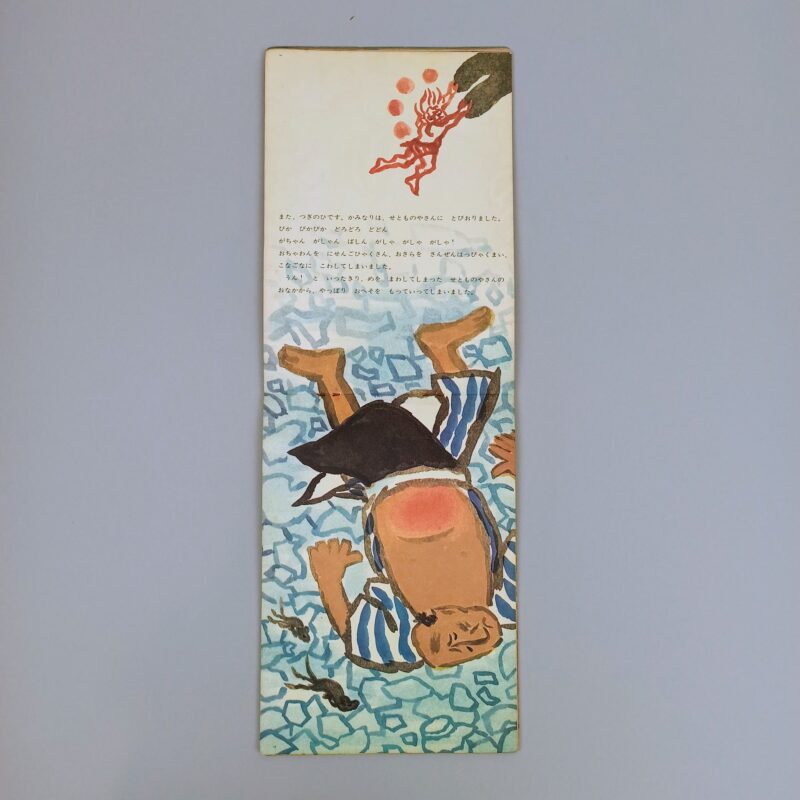 また、つぎのひです。かみなりは、せとものやさんに とびおりました。
ぴか ぴかぴか どろどろ どどん
がちゃん がしゃん ばしん がしゃ がしゃ がしゃ！
おちゃわんを にせんごひゃくさん、おさらを さんぜんはっぴゃくまい、
こなごなに こわしてしまいました。
うん！ と いったきり、めを まわしてしまった せとものやさんの
おなかから、やっぱり おへそを もっていってしまいました。